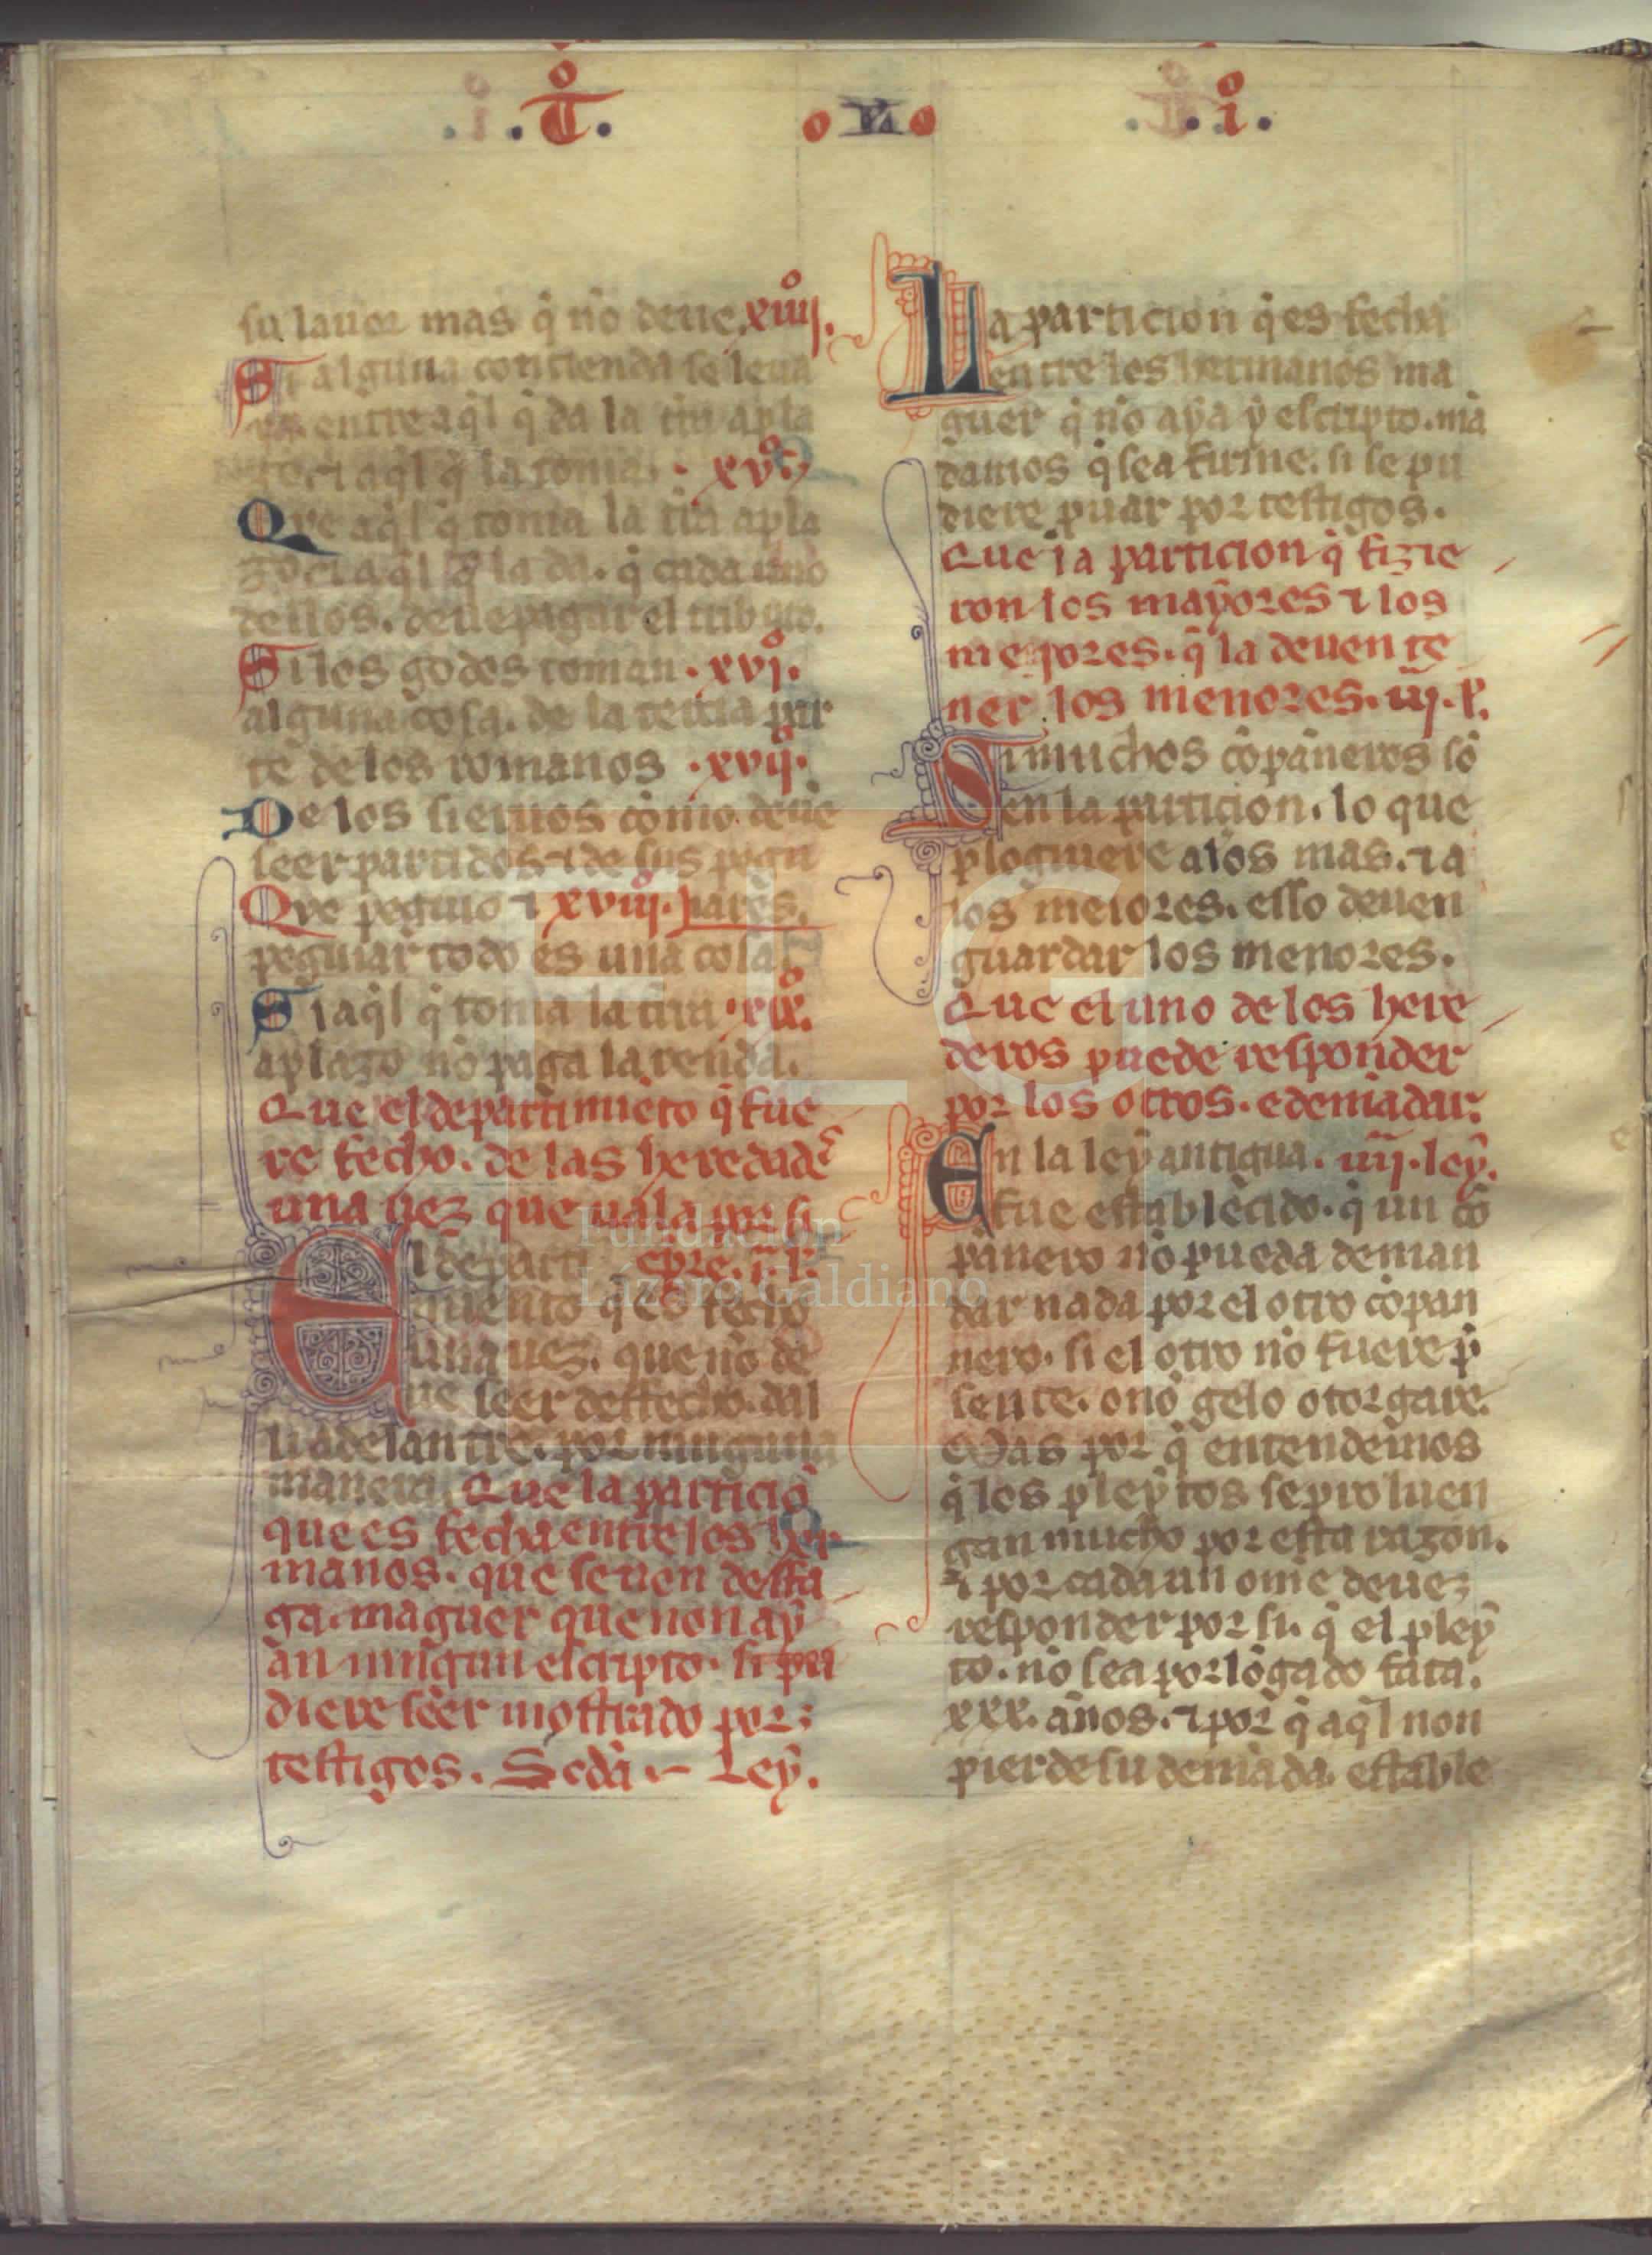 .i.t̊. ono .i.i̊.
su lauor mas q̃ nõ deue. xiiij̊.
Si alguna contienda se leua
entre aq̃l q̃ da la trr̃a apla
aq̃l q̃ la toma. xv̊.
Que aq̃l q̃ toma la trr̃a apla
zo ⁊ aq̃l q̃ la da. q̃ cada uno
dellos. deue pagar el tributo.
Si los godos toman .xvj̊.
alguna cosa. de la tercia par
te de los romanos .xvij̊.
De los sieruos cõmo deue
seer partidos ⁊ de sus pegu
Que peguio ⁊ xviij̊. iares.
peguiar todo es una cosa.
Si aq̃l q̃ toma la trr̃a .xix̊.
aplazo nõ paga la renda.
Que el departimiẽto q̃ fue
re fecho. de las heredades
una uez que uala por si
El departi epre. j. l.
miento q̃ es fecho
una uez. que nõ de
ue seer desfecho. dal
li adelantre. por ninguna
manera. Que la particiõ
que es fecha entre los her
manos. que se uen desta
ga. maguer que non aỹ
an ningun escripto. si pu
diere seer mostrado por
testigos. Scdã Leỹ.
La particion q̃ es fecha
entre los hermanos ma
guer q̃ nõ aỹa ỹ escripto. mã
damos q̃ sea firme. si se pu
diere puar por testigos.
Que la particion q̃ fizie
ron los maỹores ⁊ los
meyores. q̃ la deuen te
ner los menores. iij. l.
Si muchos cõpãneros sõ
en la particion. lo que
ploguiere a los mas. ⁊ a
los meiores. esso deuen
guardar los menores.
Que el uno de los here
deros puede responder
por los otros. e demãdar.
En la leỹ antigua. iiij. leỹ.
fue establecido. q̃ un cõ
pãnero nõ pueda deman
dar nada por el otro cõpan
nero. si el otro nõ fuere p̃
sente. o nõ gelo otorgare.
Mas por q̃ entendemos
q̃ los pleỹtos se proluen
gan mucho por esta razon.
⁊ por cada un ome deue
responder por si. q̃ el pleỹ
to. nõ sea porlõgado fata.
xxx. ãnos. ⁊ por q̃ aq̃l non
pierde su demãda. estable
FLG
Fundación
Lázaro Galdiano